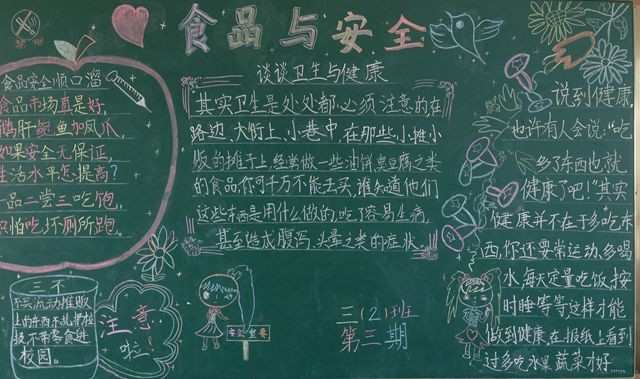 食品与安全
食品安全顺口溜
食品市场真是好,
鹅肝鲍鱼加凤爪,
如果安全无保证,
生活水平怎提高?
一品二尝三吃饱,
只怕吃坏厕所跑。
三不
不买流动摊贩
上的东西不乱带垃
圾不带零食进
校园。
注意
啦!
谈谈卫生与健康
其实卫生是处处都必须注意的在
路边、大街上、小巷中,在那些小摊小
贩的摊子上,经常做一些油饼、臭豆腐之类
的食品,你可千万不能去买,谁知道他们
这些东西是用什么做的,吃了容易生病,
甚至造成腹泻、头晕之类的症状。
三(2)班
第三期
说到健康,
也许有人会说:“吃
多了东西也就
健康了吧!”其实
健康并不在于多吃东
西,你还要常运动、多喝
水,每天定量吃饭、按
时睡等等这样才能
做到健康,在报纸上看到
过多吃水果蔬菜才好……